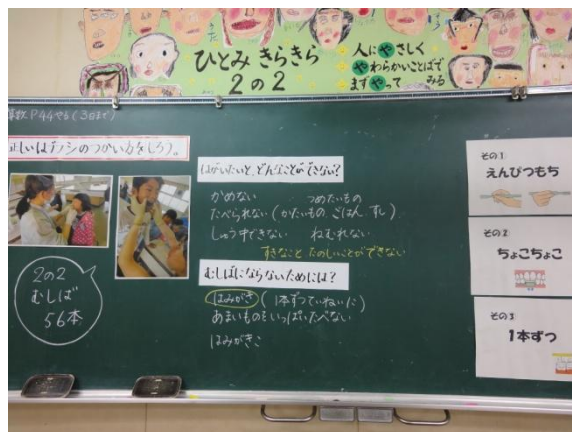 ひとみ きらきら
2の2
人に やさしく
やわらかいことばで
まずやって みる
算数 P44やる(3日まで)
正しいはブラシのつかい方をしろう。
はがいたいと、どんなことができない?
かめない つめたいもの
たべられない(かたいもの ごはん すし)
しゅう字できない ねむれない
すきなこと たのしいことができない
むしばにならないためには?
はみがき(1本ずつていねいに)
あまいものをいっぱいたべない
はみがきこ
2の2
むしば
56本
その1
えんぴつもち
その2
ちょこちょこ
その3
1本ずつ